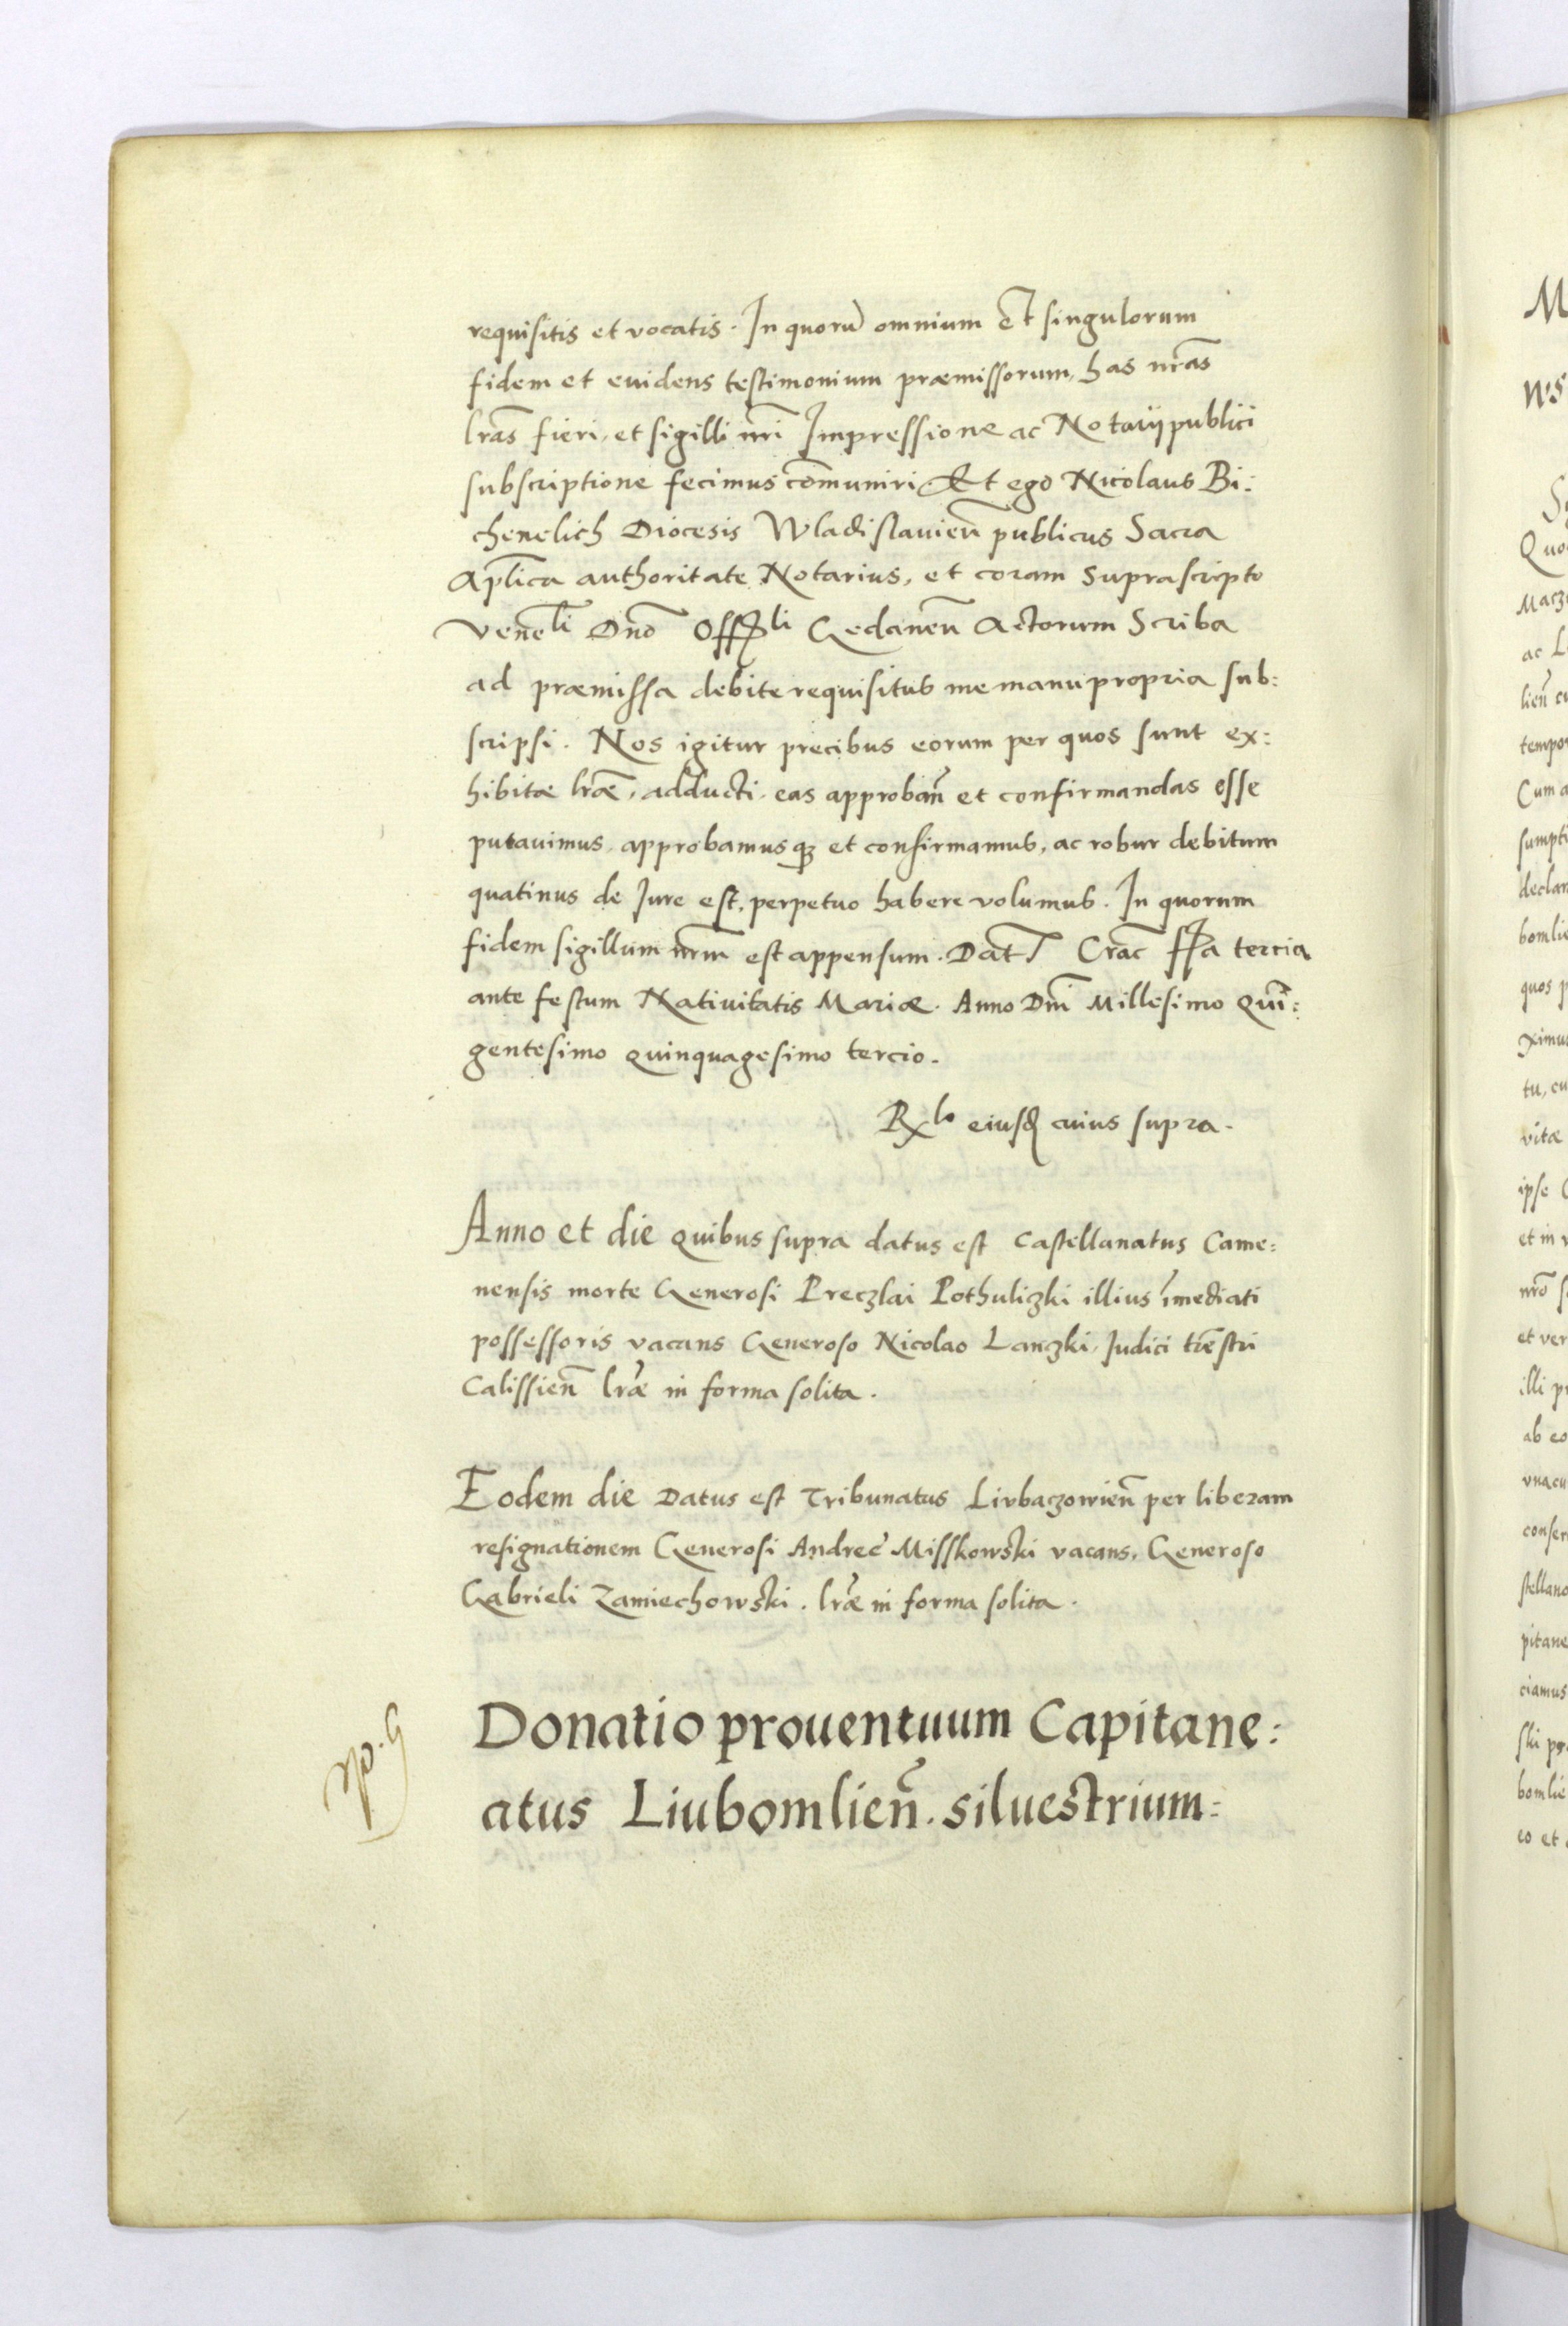 requisitis et vocatis. In quorũ omnium et singulorum
fidem et euidens testimonium præmissorum, has nr̃as
lr̃as fieri, et sigilli nr̃i Impressione ac Notarij publici
subscriptione fecimus cõmuniri. Et ego Nicolaus Bi:
chenelich Diocesis Wladislauień publicus Sacra
Apl̃ica authoritate Notarius, et coram suprascripto
Venẽli Dño Offli Gedaneñ Actorum Scriba
ad præmissa debite requisitus me manu propria sub:
scripsi. Nos igitur precibus eorum per quos sunt ex:
hibitæ lr̃æ, adducti, eas approbañ et confirmandas esse
putauimus, approbamusq₃ et confirmamus, ac robur debitum
quatinus de Iure est, perpetuo habere volumus. In quorum
fidem sigillum nr̃m est appensum. Dat̃ Crac̃ ffa tercia
ante festum Natiuitatis Mariæ. Anno Dñi Millesimo Quĩ:
gentesimo quinquagesimo tercio.
Rlo eiusd cuius supra.
Anno et die quibus supra datus est Castellanatus Came:
nensis morte Generosi Preczlai Pothulizki illius ĩmediati
possessoris vacans Generoso Nicolao Lanczki, Iudici tr̃estri
Calissieñ lr̃æ in forma solita.
Eodem die Datus est Tribunatus Liubaczowieñ per liberam
resignationem Generosi Andreę Misskowski vacans, Generoso
Gabrieli Zamiechowski. lr̃æ in forma solita.
Donatio prouentuum Capitane:
atus Liubomlieñ. siluestrium:
M
Quo
ac L
tempor
Cum a
sumpti
declar
bomlie
quos p
ximus
tu, cu
vitæ
ipse
et in v
nr̃o s
et ver
illi pr
ab eo
vnacu
conser
stellano
pitane
ciamus
ski
bomlie
eo et